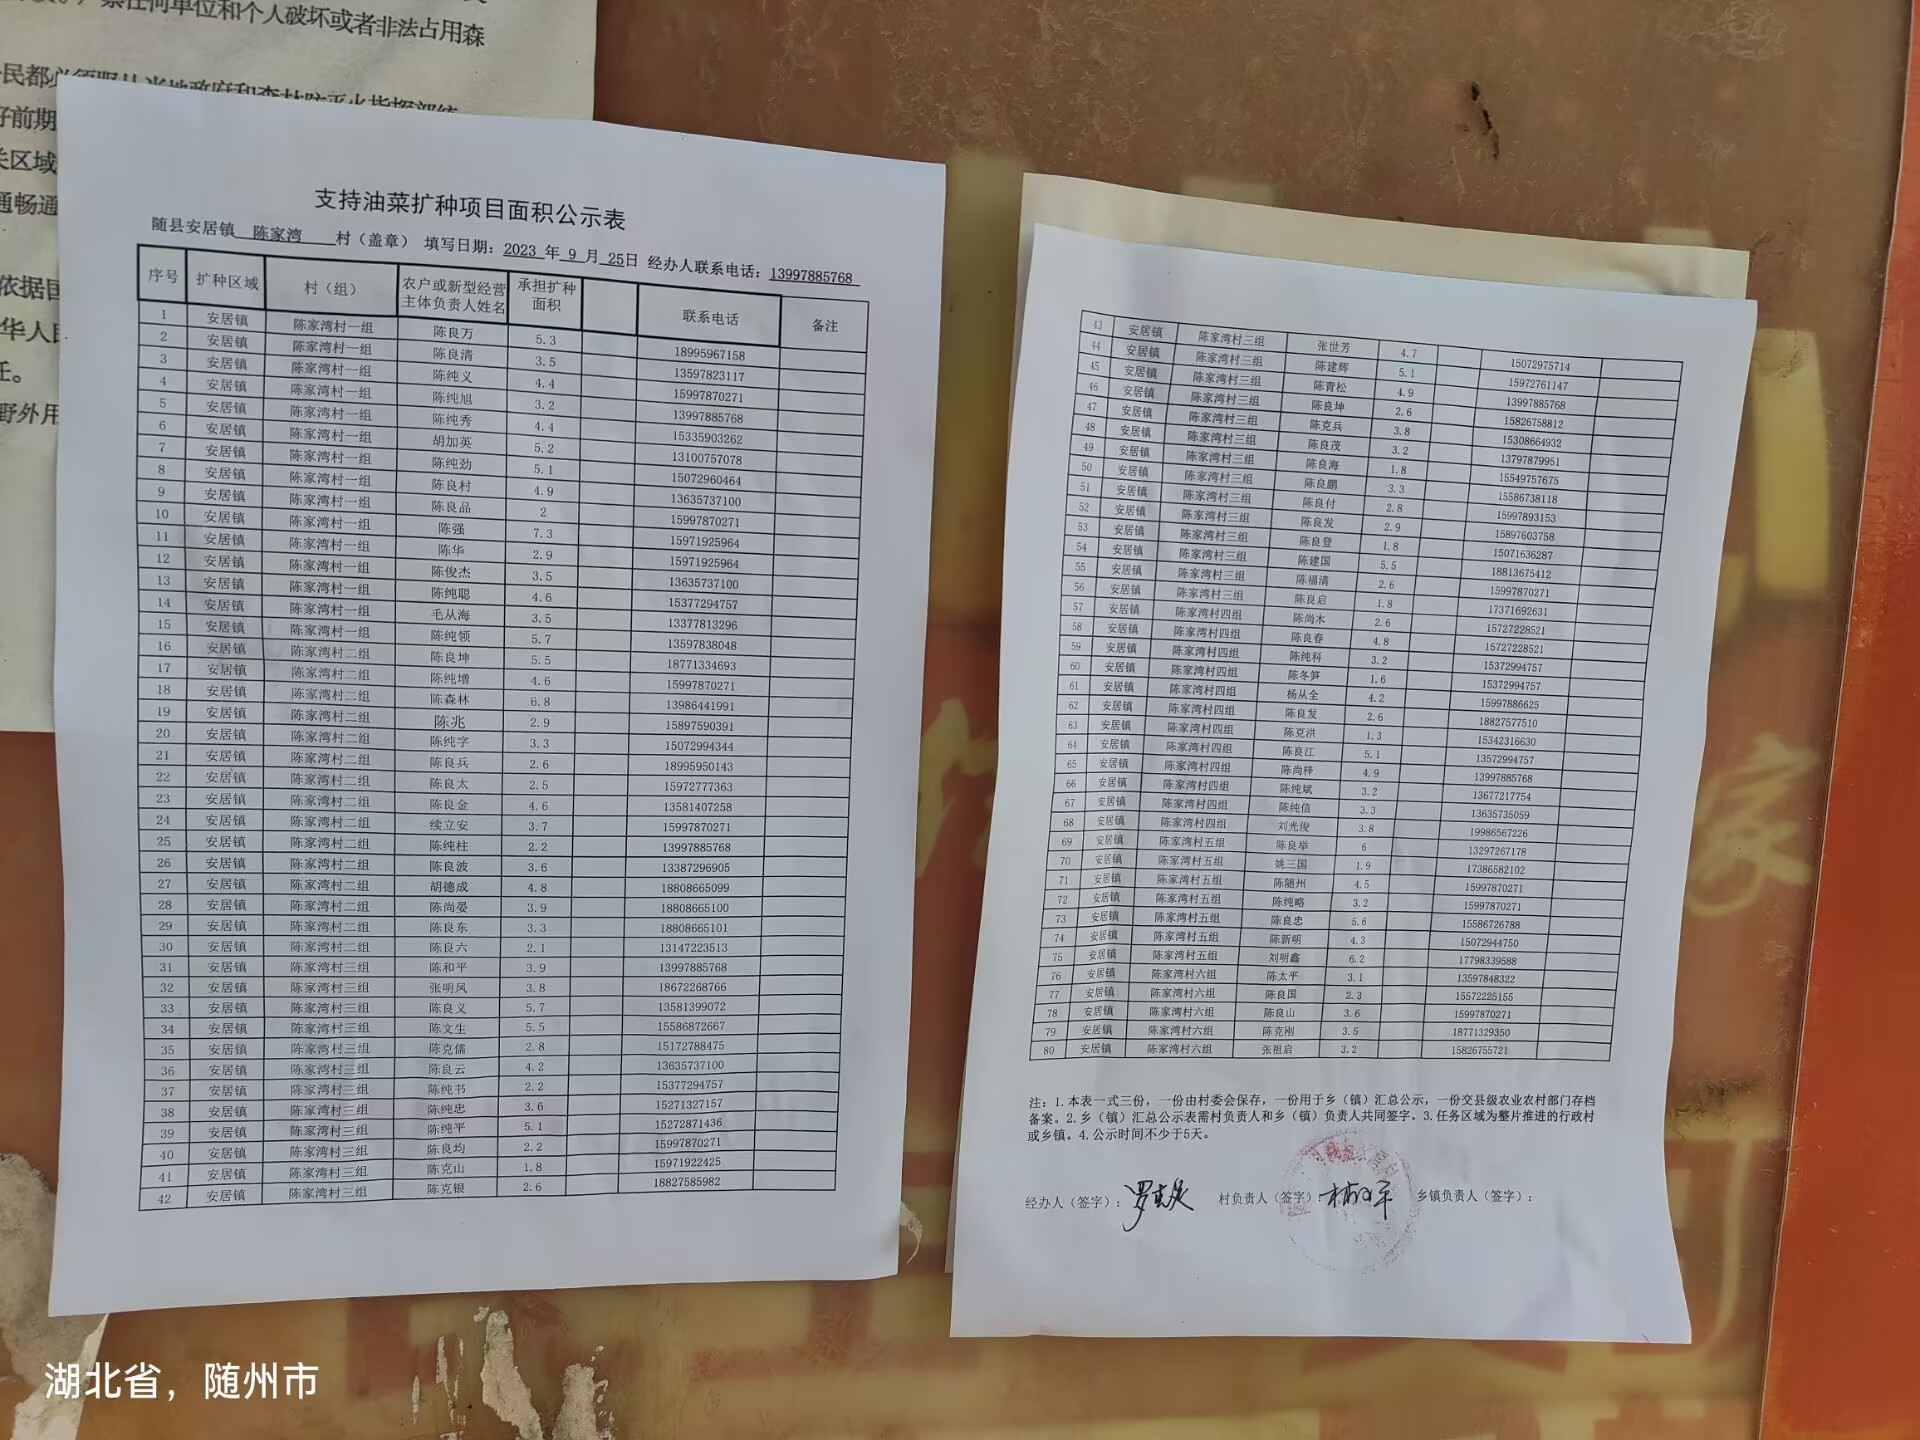 禁任何单位和个人破坏或者非法占用森
民都必须服从当地政府和森林防灭火指挥部统
好前期
关区域
通畅通
依据国
华人民
任。
野外用
支持油菜扩种项目面积公示表
随县安居镇 陈家湾 村（盖章） 填写日期：2023 年 9 月 25日 经办人联系电话：13997885768
序号 扩种区域 村（组） 农户或新型经营主体负责人姓名 承担扩种面积 联系电话 备注
1 安居镇 陈家湾村一组 陈良万 5.3 18995967158
2 安居镇 陈家湾村一组 陈良清 3.5 13597823117
3 安居镇 陈家湾村一组 陈纯义 4.4 15997870271
4 安居镇 陈家湾村一组 陈纯旭 3.2 13997885768
5 安居镇 陈家湾村一组 陈纯秀 4.4 15335903262
6 安居镇 陈家湾村一组 胡加英 5.2 13100757078
7 安居镇 陈家湾村一组 陈纯劲 5.1 15072960464
8 安居镇 陈家湾村一组 陈良村 4.9 13635737100
9 安居镇 陈家湾村一组 陈良品 2 15997870271
10 安居镇 陈家湾村一组 陈强 7.3 15971925964
11 安居镇 陈家湾村一组 陈华 2.9 15971925964
12 安居镇 陈家湾村一组 陈俊杰 3.5 13635737100
13 安居镇 陈家湾村一组 陈纯聪 4.6 15377294757
14 安居镇 陈家湾村一组 毛从海 3.5 13377813296
15 安居镇 陈家湾村一组 陈纯领 5.7 13597838048
16 安居镇 陈家湾村二组 陈良坤 5.5 18771334693
17 安居镇 陈家湾村二组 陈纯增 4.6 15997870271
18 安居镇 陈家湾村二组 陈森林 6.8 13986441991
19 安居镇 陈家湾村二组 陈兆 2.9 15897590391
20 安居镇 陈家湾村二组 陈纯字 3.3 15072994344
21 安居镇 陈家湾村二组 陈良兵 2.6 18995950143
22 安居镇 陈家湾村二组 陈良太 2.5 15972777363
23 安居镇 陈家湾村二组 陈良金 4.6 13581407258
24 安居镇 陈家湾村二组 续立安 3.7 15997870271
25 安居镇 陈家湾村二组 陈纯柱 2.2 13997885768
26 安居镇 陈家湾村二组 陈良波 3.6 13387296905
27 安居镇 陈家湾村二组 胡德成 4.8 18808665099
28 安居镇 陈家湾村二组 陈尚晏 3.9 18808665100
29 安居镇 陈家湾村二组 陈良东 3.3 18808665101
30 安居镇 陈家湾村二组 陈良六 2.1 13147223513
31 安居镇 陈家湾村三组 陈和平 3.9 13997885768
32 安居镇 陈家湾村三组 张明凤 3.8 18672268766
33 安居镇 陈家湾村三组 陈良义 5.7 13581399072
34 安居镇 陈家湾村三组 陈文生 5.5 15586872667
35 安居镇 陈家湾村三组 陈克儒 2.8 15172788475
36 安居镇 陈家湾村三组 陈良云 4.2 13635737100
37 安居镇 陈家湾村三组 陈纯书 2.2 15377294757
38 安居镇 陈家湾村三组 陈纯忠 3.6 15271327157
39 安居镇 陈家湾村三组 陈纯平 5.1 15272871436
40 安居镇 陈家湾村三组 陈良均 2.2 15997870271
41 安居镇 陈家湾村三组 陈克山 1.8 15971922425
42 安居镇 陈家湾村三组 陈克银 2.6 18827585982
43 安居镇 陈家湾村三组 张世芳 4.7 15072975714
44 安居镇 陈家湾村三组 陈建辉 5.1 15972761147
45 安居镇 陈家湾村三组 陈青松 4.9 13997885768
46 安居镇 陈家湾村三组 陈良坤 2.6 15826758812
47 安居镇 陈家湾村三组 陈克兵 3.8 15308664932
48 安居镇 陈家湾村三组 陈良茂 3.2 13797879951
49 安居镇 陈家湾村三组 陈良海 1.8 15549757675
50 安居镇 陈家湾村三组 陈良鹏 3.3 15586738118
51 安居镇 陈家湾村三组 陈良付 2.8 15997893153
52 安居镇 陈家湾村三组 陈良发 2.9 15897603758
53 安居镇 陈家湾村三组 陈良登 1.8 15071636287
54 安居镇 陈家湾村三组 陈建国 5.5 18813675412
55 安居镇 陈家湾村三组 陈福清 2.6 15997870271
56 安居镇 陈家湾村三组 陈良启 1.8 17371692631
57 安居镇 陈家湾村四组 陈尚木 2.6 15727228521
58 安居镇 陈家湾村四组 陈良春 4.8 15727228521
59 安居镇 陈家湾村四组 陈纯科 3.2 15372994757
60 安居镇 陈家湾村四组 陈冬笋 1.6 15372994757
61 安居镇 陈家湾村四组 杨从全 4.2 15997886625
62 安居镇 陈家湾村四组 陈良发 2.6 18827577510
63 安居镇 陈家湾村四组 陈克洪 1.3 15342316630
64 安居镇 陈家湾村四组 陈良江 5.1 13572994757
65 安居镇 陈家湾村四组 陈尚梓 4.9 13997885768
66 安居镇 陈家湾村四组 陈纯斌 3.2 13677217754
67 安居镇 陈家湾村四组 陈纯信 3.3 13635735059
68 安居镇 陈家湾村四组 刘光俊 3.8 19986567226
69 安居镇 陈家湾村五组 陈良举 6 13297267178
70 安居镇 陈家湾村五组 姚三国 1.9 17386582102
71 安居镇 陈家湾村五组 陈随州 4.5 15997870271
72 安居镇 陈家湾村五组 陈纯略 3.2 15997870271
73 安居镇 陈家湾村五组 陈良忠 5.6 15586726788
74 安居镇 陈家湾村五组 陈新明 4.3 15072944750
75 安居镇 陈家湾村五组 刘明鑫 6.2 17798339588
76 安居镇 陈家湾村六组 陈太平 3.1 13597848322
77 安居镇 陈家湾村六组 陈良国 2.3 15572225155
78 安居镇 陈家湾村六组 陈良山 3.6 15997870271
79 安居镇 陈家湾村六组 陈克刚 3.5 18771329350
80 安居镇 陈家湾村六组 张祖启 3.2 15826755721
注：1.本表一式三份，一份由村委会保存，一份用于乡（镇）汇总公示，一份交县级农业农村部门存档
备案。2.乡（镇）汇总公示表需村负责人和乡（镇）负责人共同签字。3.任务区域为整片推进的行政村
或乡镇。4.公示时间不少于5天。
经办人（签字）： 村负责人（签字）： 乡镇负责人（签字）：
家
湖北省，随州市